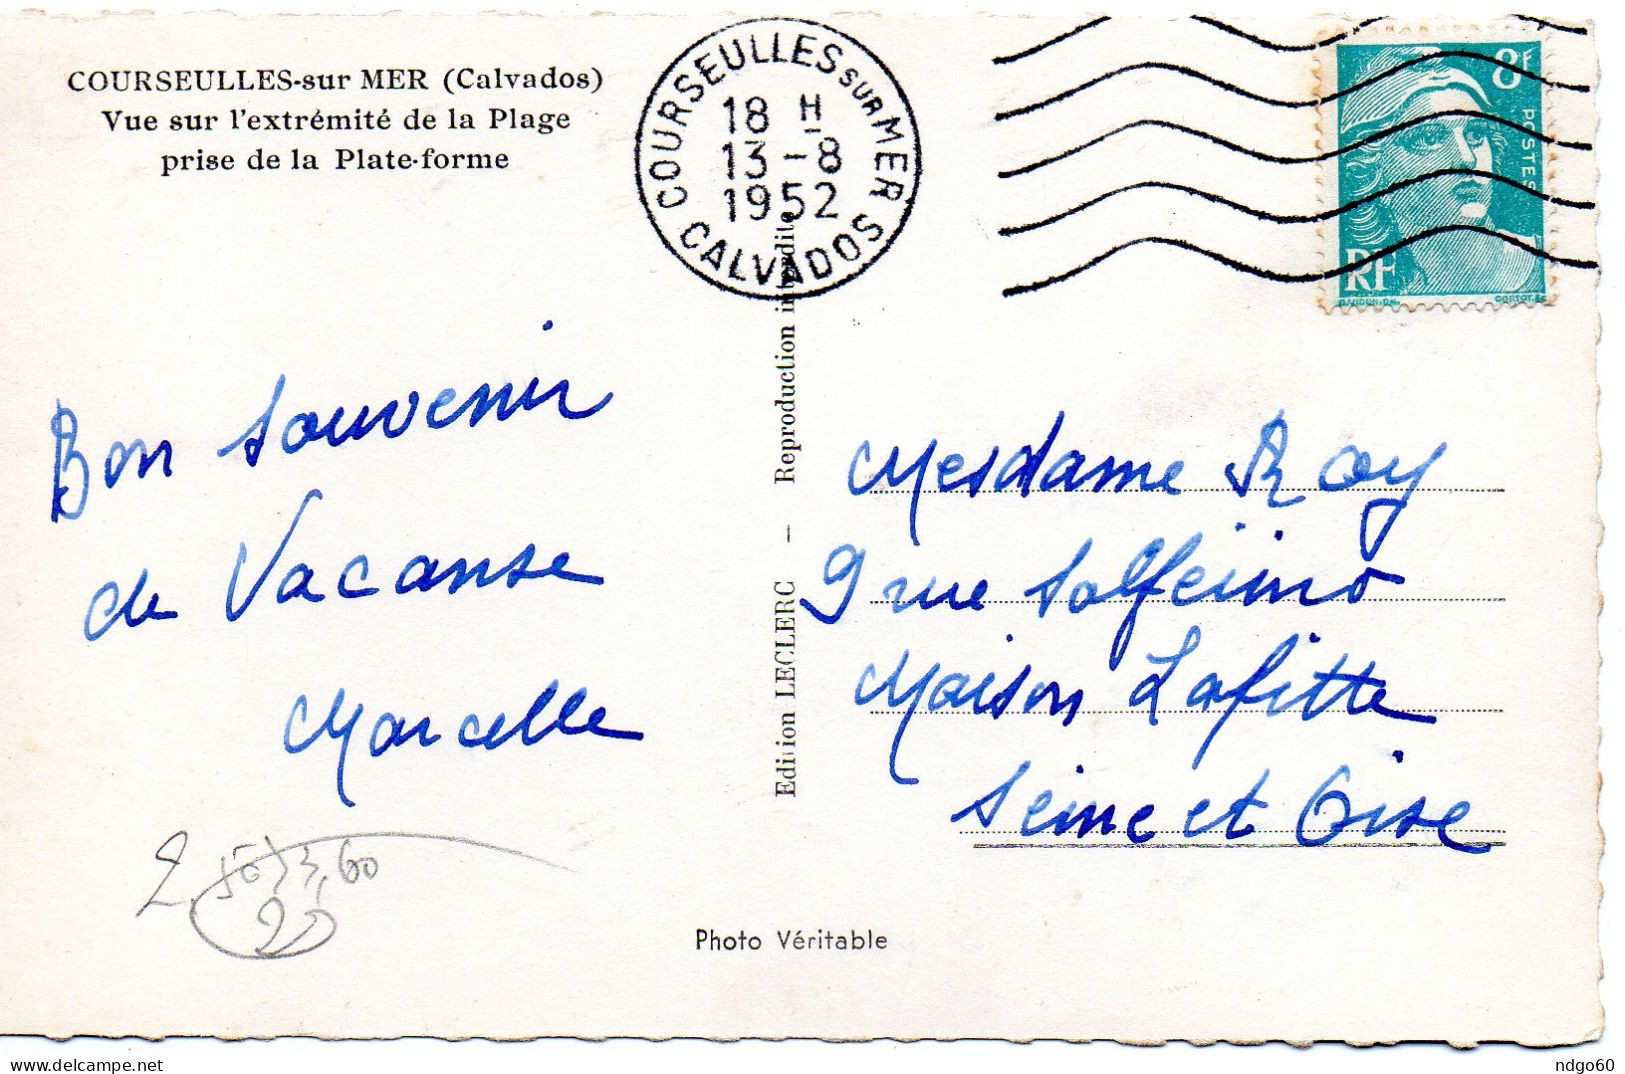 COURSEULLES-sur MER (Calvados)
Vue sur l'extrémité de la Plage
prise de la Plate-forme
COURSEULLES SUR MER
18 H
13-8
1952
CALVADOS
8F
POSTES
RF
GANDON.DEL
CORTOT.SC
Bon souvenir
de Vacanse
Marcelle
Edition LECLERC — Reproduction interdite
Mesdame Roy
9 rue Solfeino
Maison Lafitte
Seine et Oise
Photo Véritable
delcampe.net
ndgo60